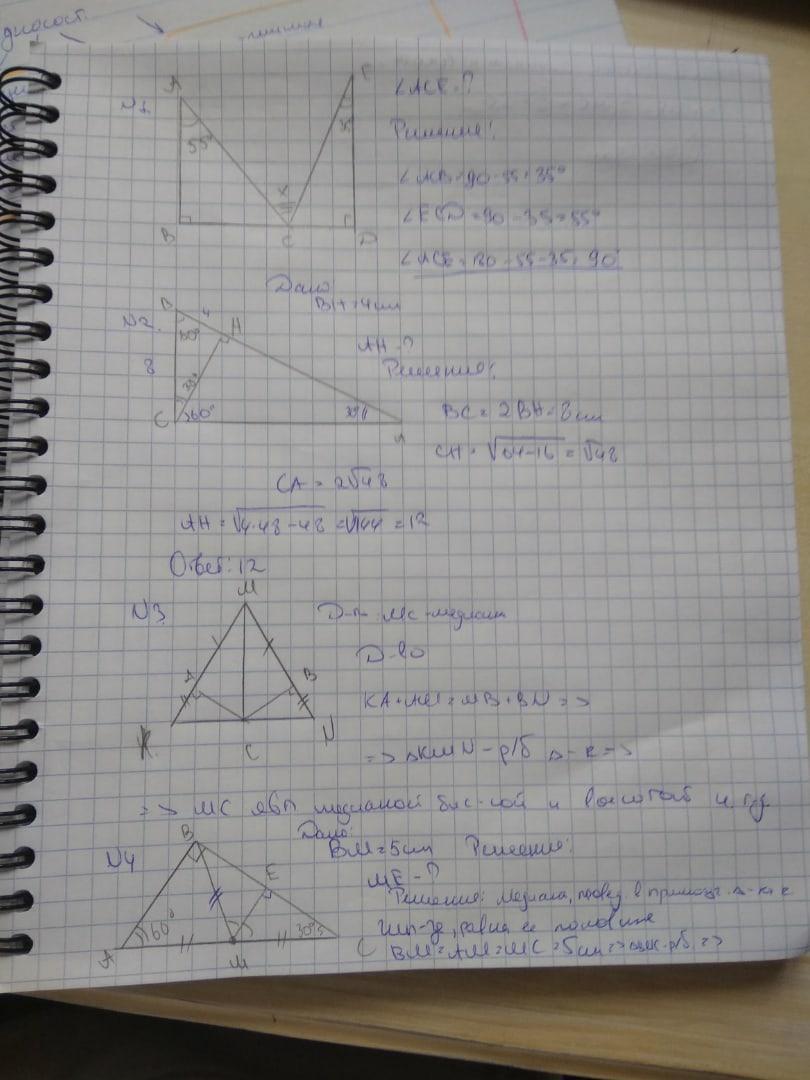 N1.
A
55°
B
C
x
E
35
D
∠ACE-?
Решение:
∠ACB=90-55=35°
∠ECD=90-35=55°
∠ACE=180-55-35=90°
Дано
BH=4см
N2.
B
4
H
60°
8
30°
C
60°
30°
A
AH-?
Решение:
BC=2BH=8см
CH=√64-16=√48
CA=2√48
AH=√4·48-48=√144=12
Ответ: 12
N3.
M
A
B
K
C
N
Д-ть MC-медиана
Д-во
KA+AM=MB+BN=>
=>△KMN-р/б △-к=>
=> MC явл медианой бис-сой и высотой и т.д.
Дано:
N4
BM=5см Решение:
B
E
60°
30°
A
M
C
ME-?
Решение: медиана, провед в прямоуг. △-ке к
гип-зе, равна её половине
BM=AM=MC=5см=> р/б=>